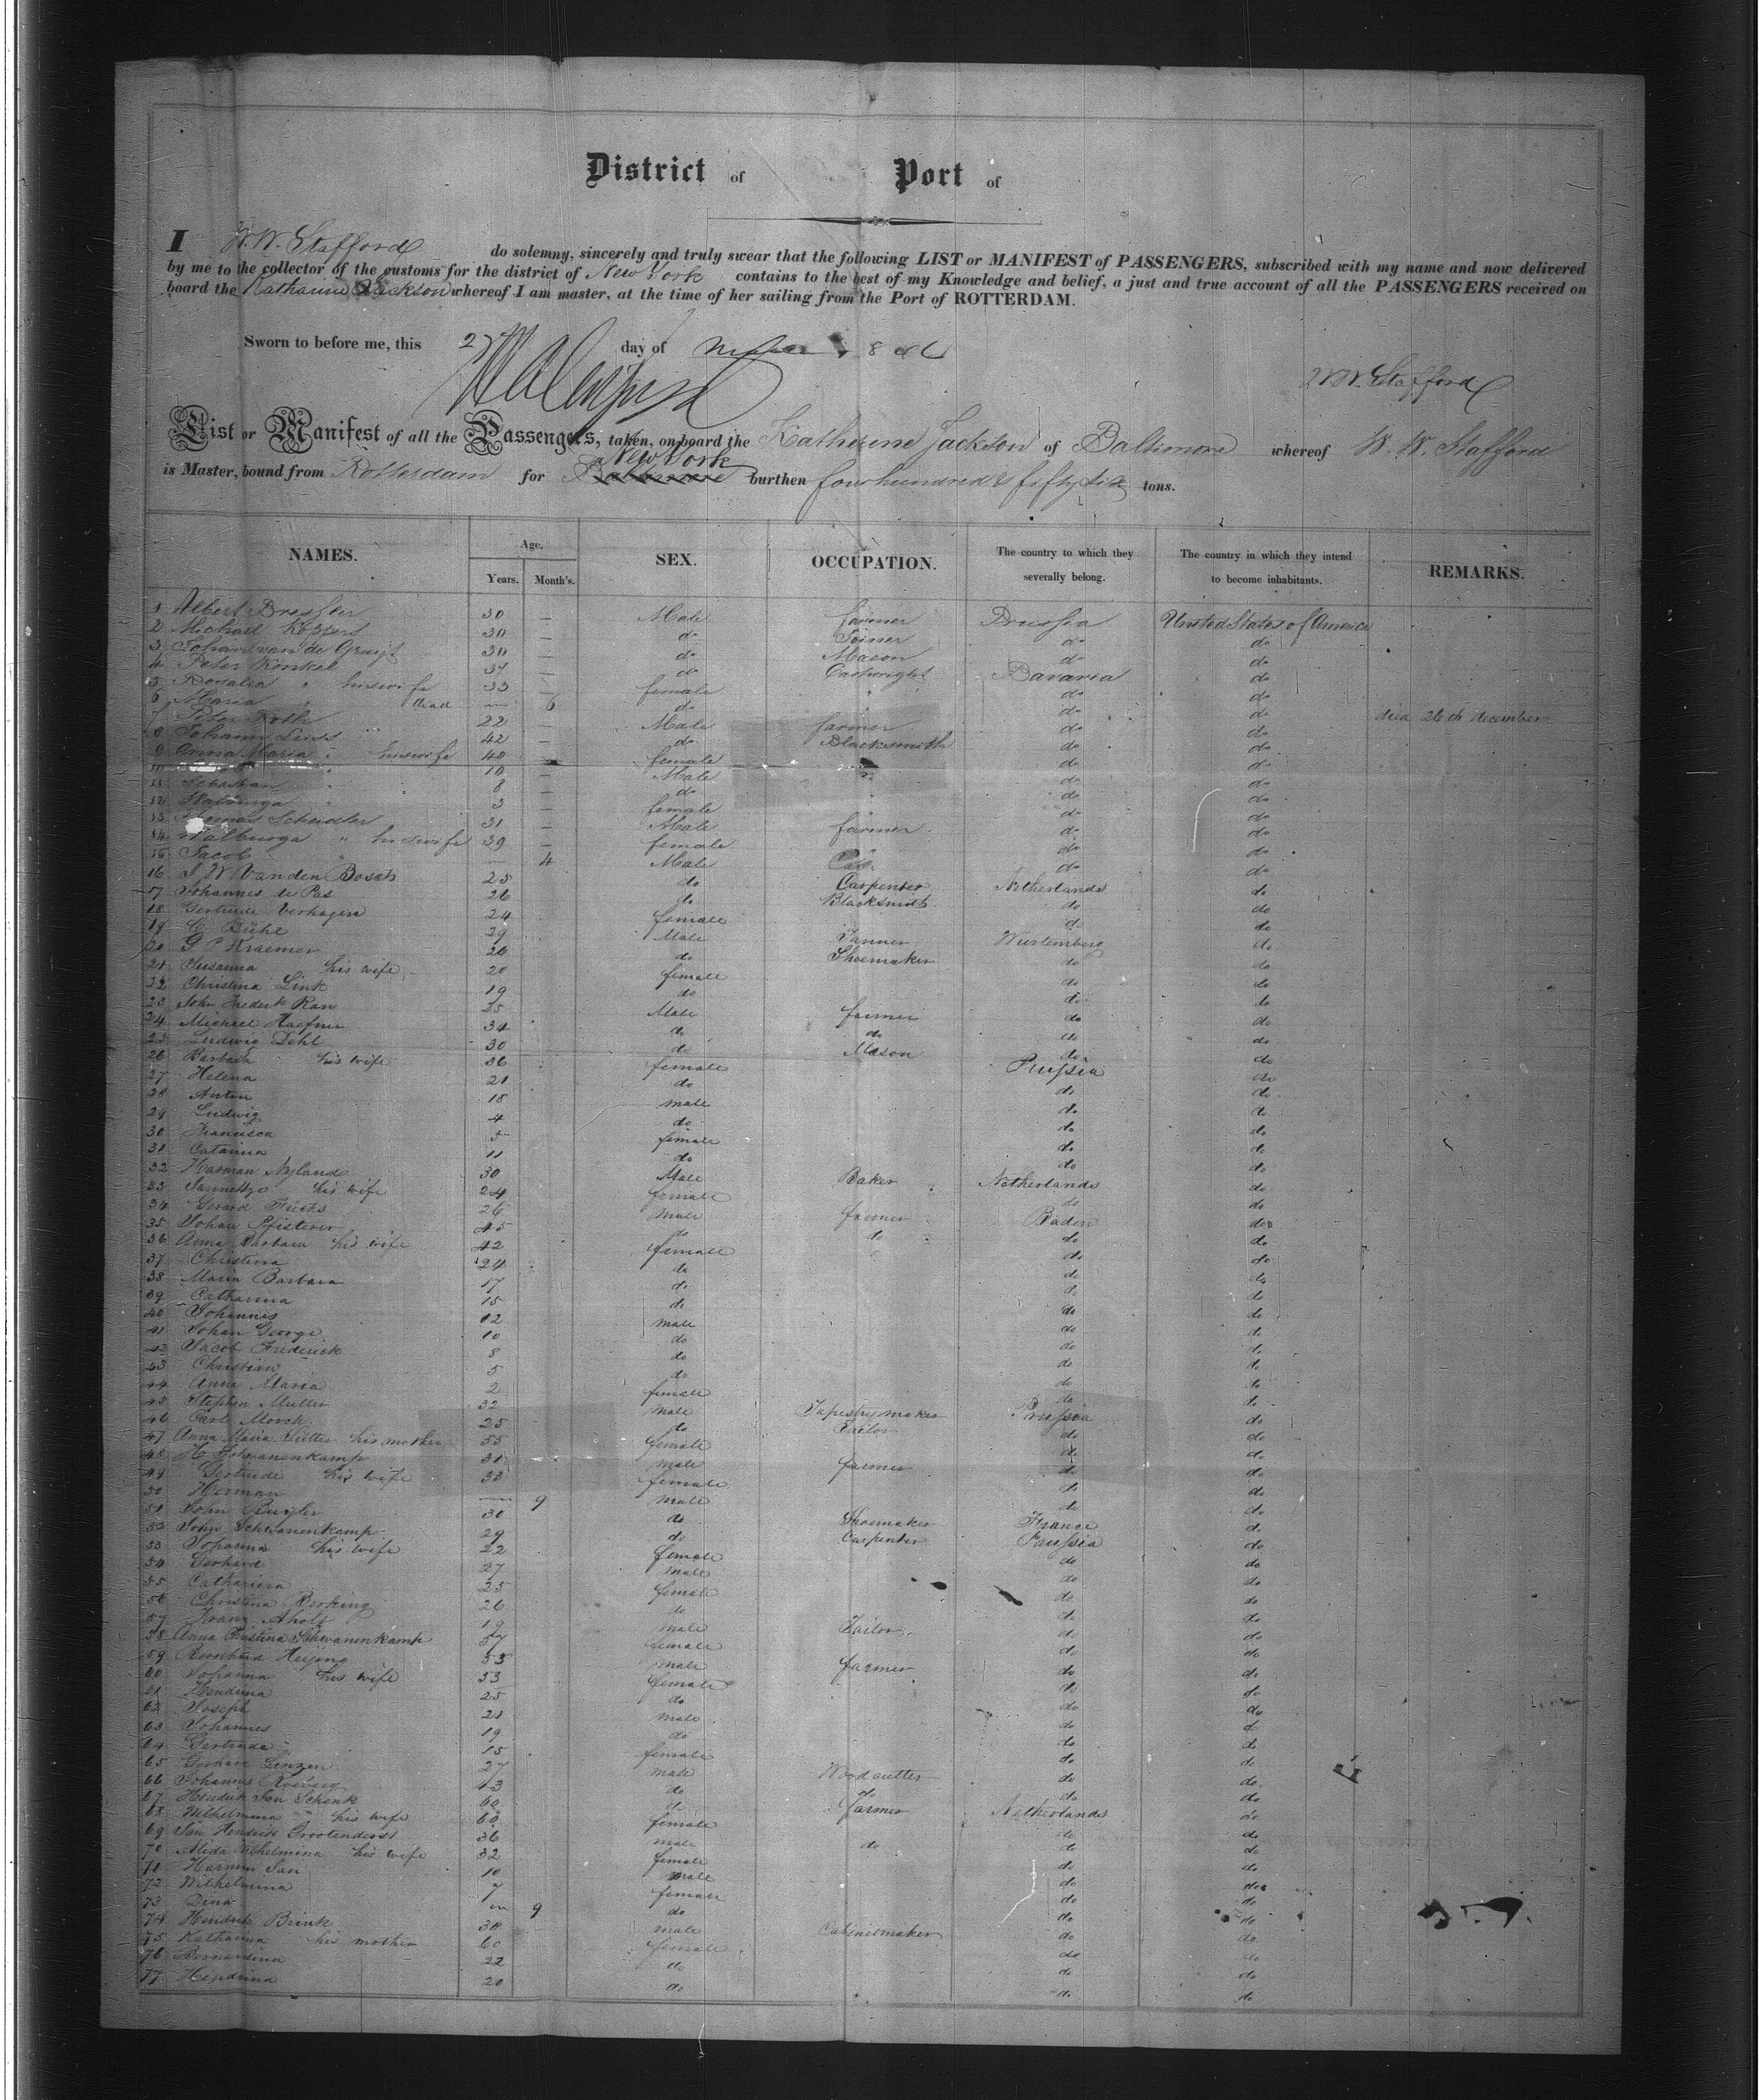 District of Port of
I W. W. Stafford do solemny, sincerely and truly swear that the following LIST or MANIFEST of PASSENGERS, subscribed with my name and now delivered
by me to the collector of the customs for the district of New York contains to the best of my Knowledge and belief, a just and true account of all the PASSENGERS received on
board the Katharine Jackson whereof I am master, at the time of her sailing from the Port of ROTTERDAM.
Sworn to before me, this day of
W. W. Stafford
List or Manifest of all the Passengers, taken, on board the Katherine Jackson of Baltimore whereof W. W. Stafford
New York
is Master, bound from Rotterdam for Baltimore burthen four hundred & fifty six tons.
NAMES. Age. SEX. OCCUPATION. The country to which they severally belong. The country in which they intend to become inhabitants. REMARKS.
Years. Month's.
1 Albert Dressler 30 — Male farmer Prussia United States of America
2 Michael Koppers 30 — do Joiner do do
3 Johan van de Gruyt 30 — do Macon do do
4 Peter Konkel 37 — do Cartwright Bavaria do
5 Rosalia " his wife 33 — female " do do
6 Maria " dead — 6 do do do died 26th december
7 Peter Roth 22 — Male farmer do do
8 Johann Leiss 42 — do Blacksmith do do
9 Anna Maria " his wife 40 — female do do
10 10 — Male do do
11 Sebastian 8 do do do
12 Walburga 3 female do do
13 Thomas Scheidler 31 — Male farmer do do
14 Walburga " his wife 39 — female do do
15 Jacob — 4 Male do do
16 J W Van den Bosch 25 do Carpenter Netherlands do
17 Johannes te Pas 26 do Blacksmith do do
18 Gertrude Verhagen 24 female do do
19 C Biehl 29 Male Tanner Wurtemberg do
20 G P Kraemer 26 do Shoemaker do do
21 Susanna his wife 20 female do do
22 Christina Link 19 do do do
23 John Frederk Rau 25 Male farmer do do
24 Michael Haefner 34 do do do do
25 Ludwig Dehl 30 do Mason do do
26 Barbara his wife 36 female Prussia do
27 Helena 21 do do do
28 Anton 18 male do do
29 Ludwig 4 do do do
30 Francisca 5 female do do
31 Catarina 11 do do do
32 Harman Nyland 30 Male Baker Netherlands do
33 Jannetye his wife 24 female do do
34 Gerard Fuchs 26 male farmer Baden do
35 Johan Pfisterer 45 do do do do
36 Anna Barbara his wife 42 female do do
37 Christina 24 do do do
38 Maria Barbara 17 do do do
39 Catharina 15 do do do
40 Johannes 12 male do do
41 Johan George 10 do do do
42 Jacob Frederick 8 do do do
43 Christian 5 do do do
44 Anna Maria 2 female do do
45 Stephen Muller 32 male Tapestry maker Prussia do
46 Carl Morch 25 do Tailor do do
47 Anna Maria his mother 55 female do do
48 H Schwanenkamp 31 male farmer do do
49 Gertrude his wife 33 female do do
50 Herman — 9 male do do
51 John 30 do Shoemaker France do
52 John Schwanenkamp 29 do Carpenter Prussia do
53 Johanna his wife 22 female do do
54 Gerhard 27 male do do
55 Catharina 25 female do do
56 Christina Berking 26 do do do
57 Franz 19 male Tailor do do
58 Anna Christina Schwanenkamp 57 female do do
59 53 male farmer do do
60 Johanna his wife 53 female do do
61 Hendrina 25 do do do
62 Joseph 21 male do do
63 Johannes 19 do do do
64 Gertruda 15 female do do
65 Gerhard Linzen 27 male Woodcutter do do
66 Johannes 43 do do do do
67 Hendrik Jan Schenk 60 do farmer Netherlands do
68 Wilhelmina " his wife 60 female do do
69 Jan Hendrik Grootenderst 36 male do do do
70 Alida Wilhelmina his wife 32 female do do
71 Harmen Jan 10 male do do
72 Wilhelmina 7 female do do
73 Dina — 9 do do do
74 Hendrik Brink 30 male Cabinetmaker do do
75 Katharina his mother 60 female do do
76 Bernardina 22 do do do
77 Hendrina 20 do do do